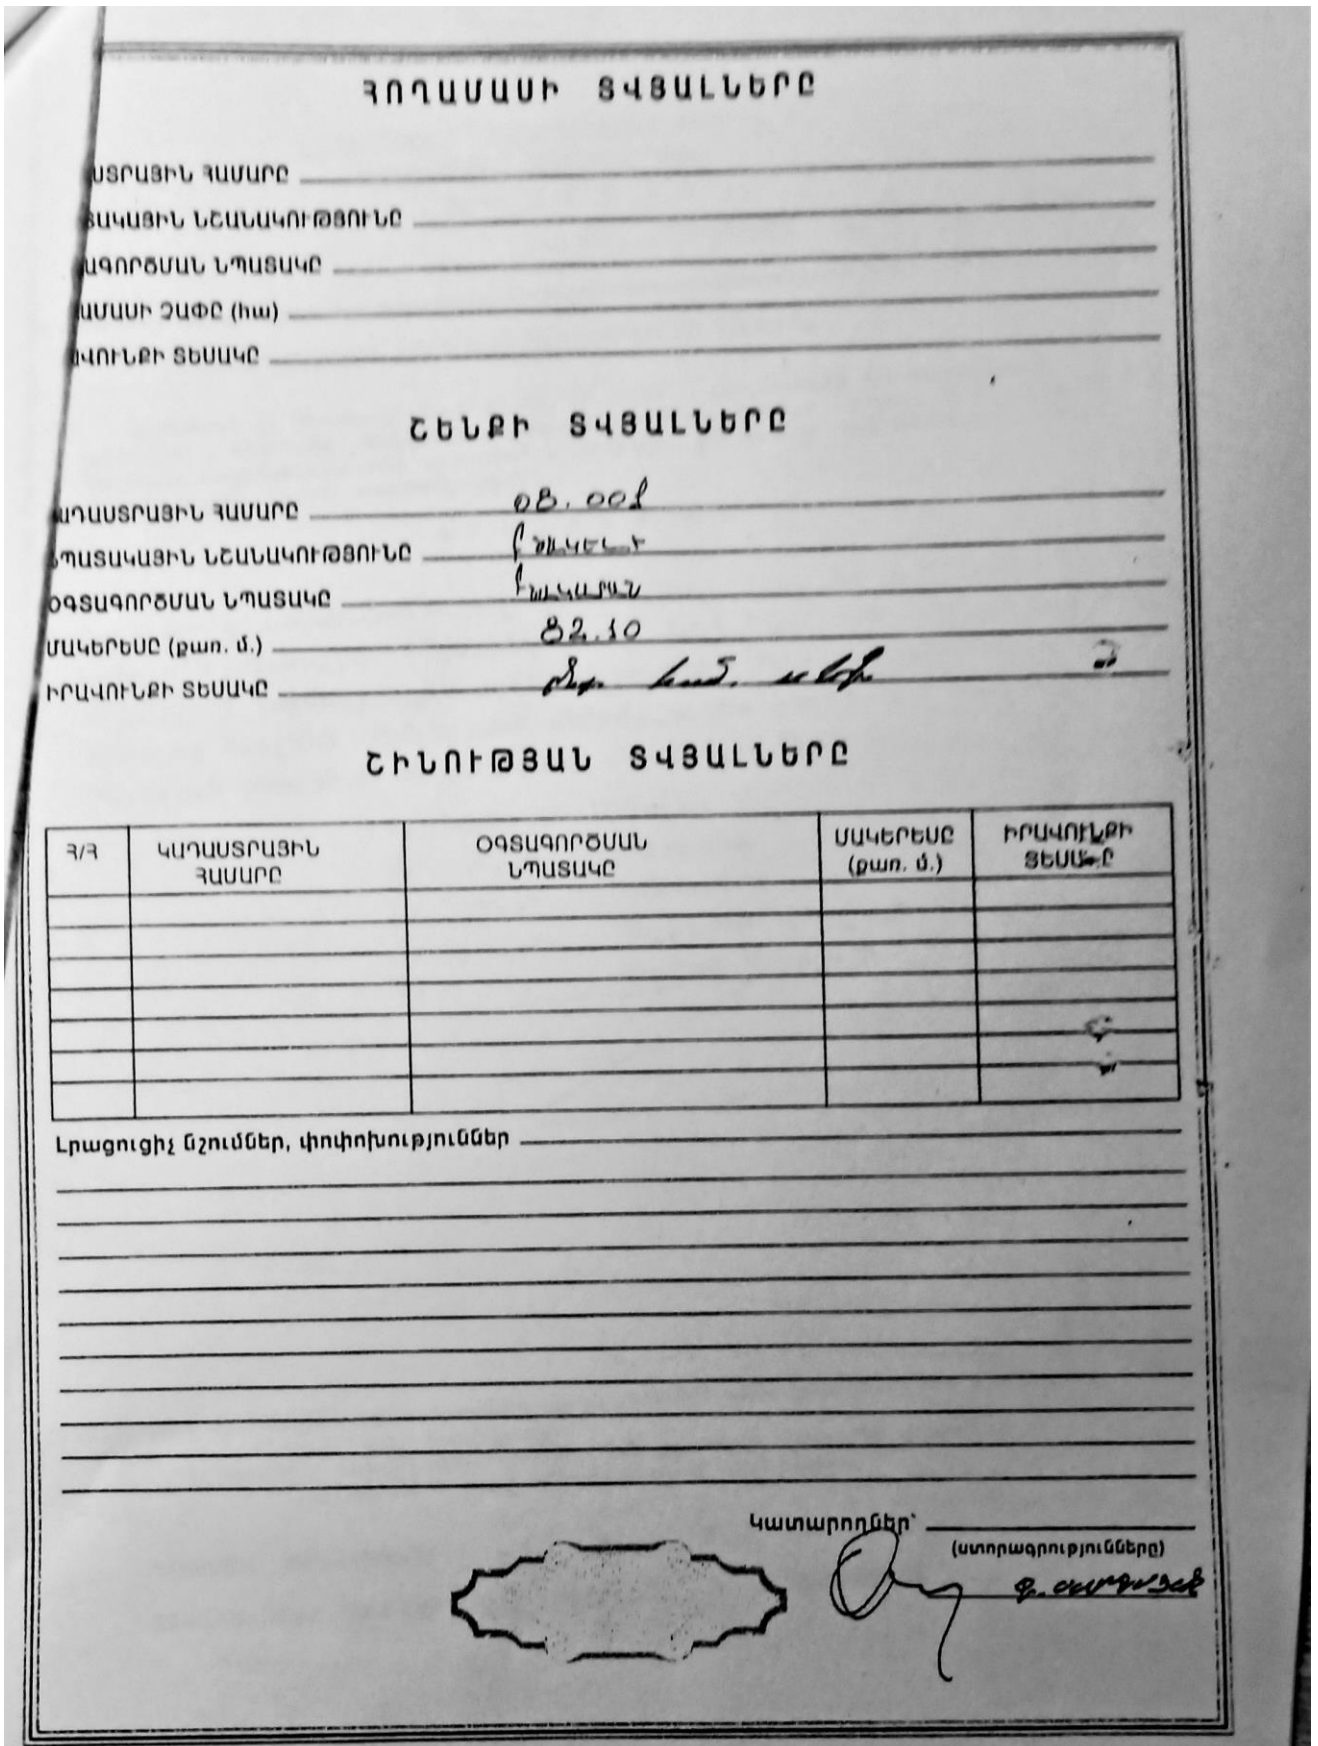 ՀՈՂԱՄԱՍԻ ՏՎՅԱԼՆԵՐԸ
ԱՍՏՐԱՅԻՆ ՀԱՄԱՐԸ
ՏԱԿԱՅԻՆ ՆՇԱՆԱԿՈՒԹՅՈՒՆԸ
ԱԳՈՐԾՄԱՆ ՆՊԱՏԱԿԸ
ԱՄԱՍԻ ՉԱՓԸ (հա)
ԱՎՈՒՆՔԻ ՏԵՍԱԿԸ
ՇԵՆՔԻ ՏՎՅԱԼՆԵՐԸ
ԱԴԱՍՏՐԱՅԻՆ ՀԱՄԱՐԸ 08.001
ՊԱՏԱԿԱՅԻՆ ՆՇԱՆԱԿՈՒԹՅՈՒՆԸ Բնակելի
ՕԳՏԱԳՈՐԾՄԱՆ ՆՊԱՏԱԿԸ Բնակարան
ՄԱԿԵՐԵՍԸ (քառ. մ.) 82.10
ԻՐԱՎՈՒՆՔԻ ՏԵՍԱԿԸ
ՇԻՆՈՒԹՅԱՆ ՏՎՅԱԼՆԵՐԸ
Հ/Հ ԿԱԴԱՍՏՐԱՅԻՆ ՀԱՄԱՐԸ ՕԳՏԱԳՈՐԾՄԱՆ ՆՊԱՏԱԿԸ ՄԱԿԵՐԵՍԸ (քառ. մ.) ԻՐԱՎՈՒՆՔԻ ՏԵՍԱԿԸ
Լրացուցիչ նշումներ, փոփոխություններ
Կատարողներ՝
(ստորագրությունները)